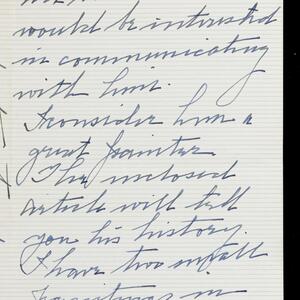 would be interested
in communicating
with him.
I consider him a
great painter.
The inclosed
article will tell
you his history.
I have two small
paintings in